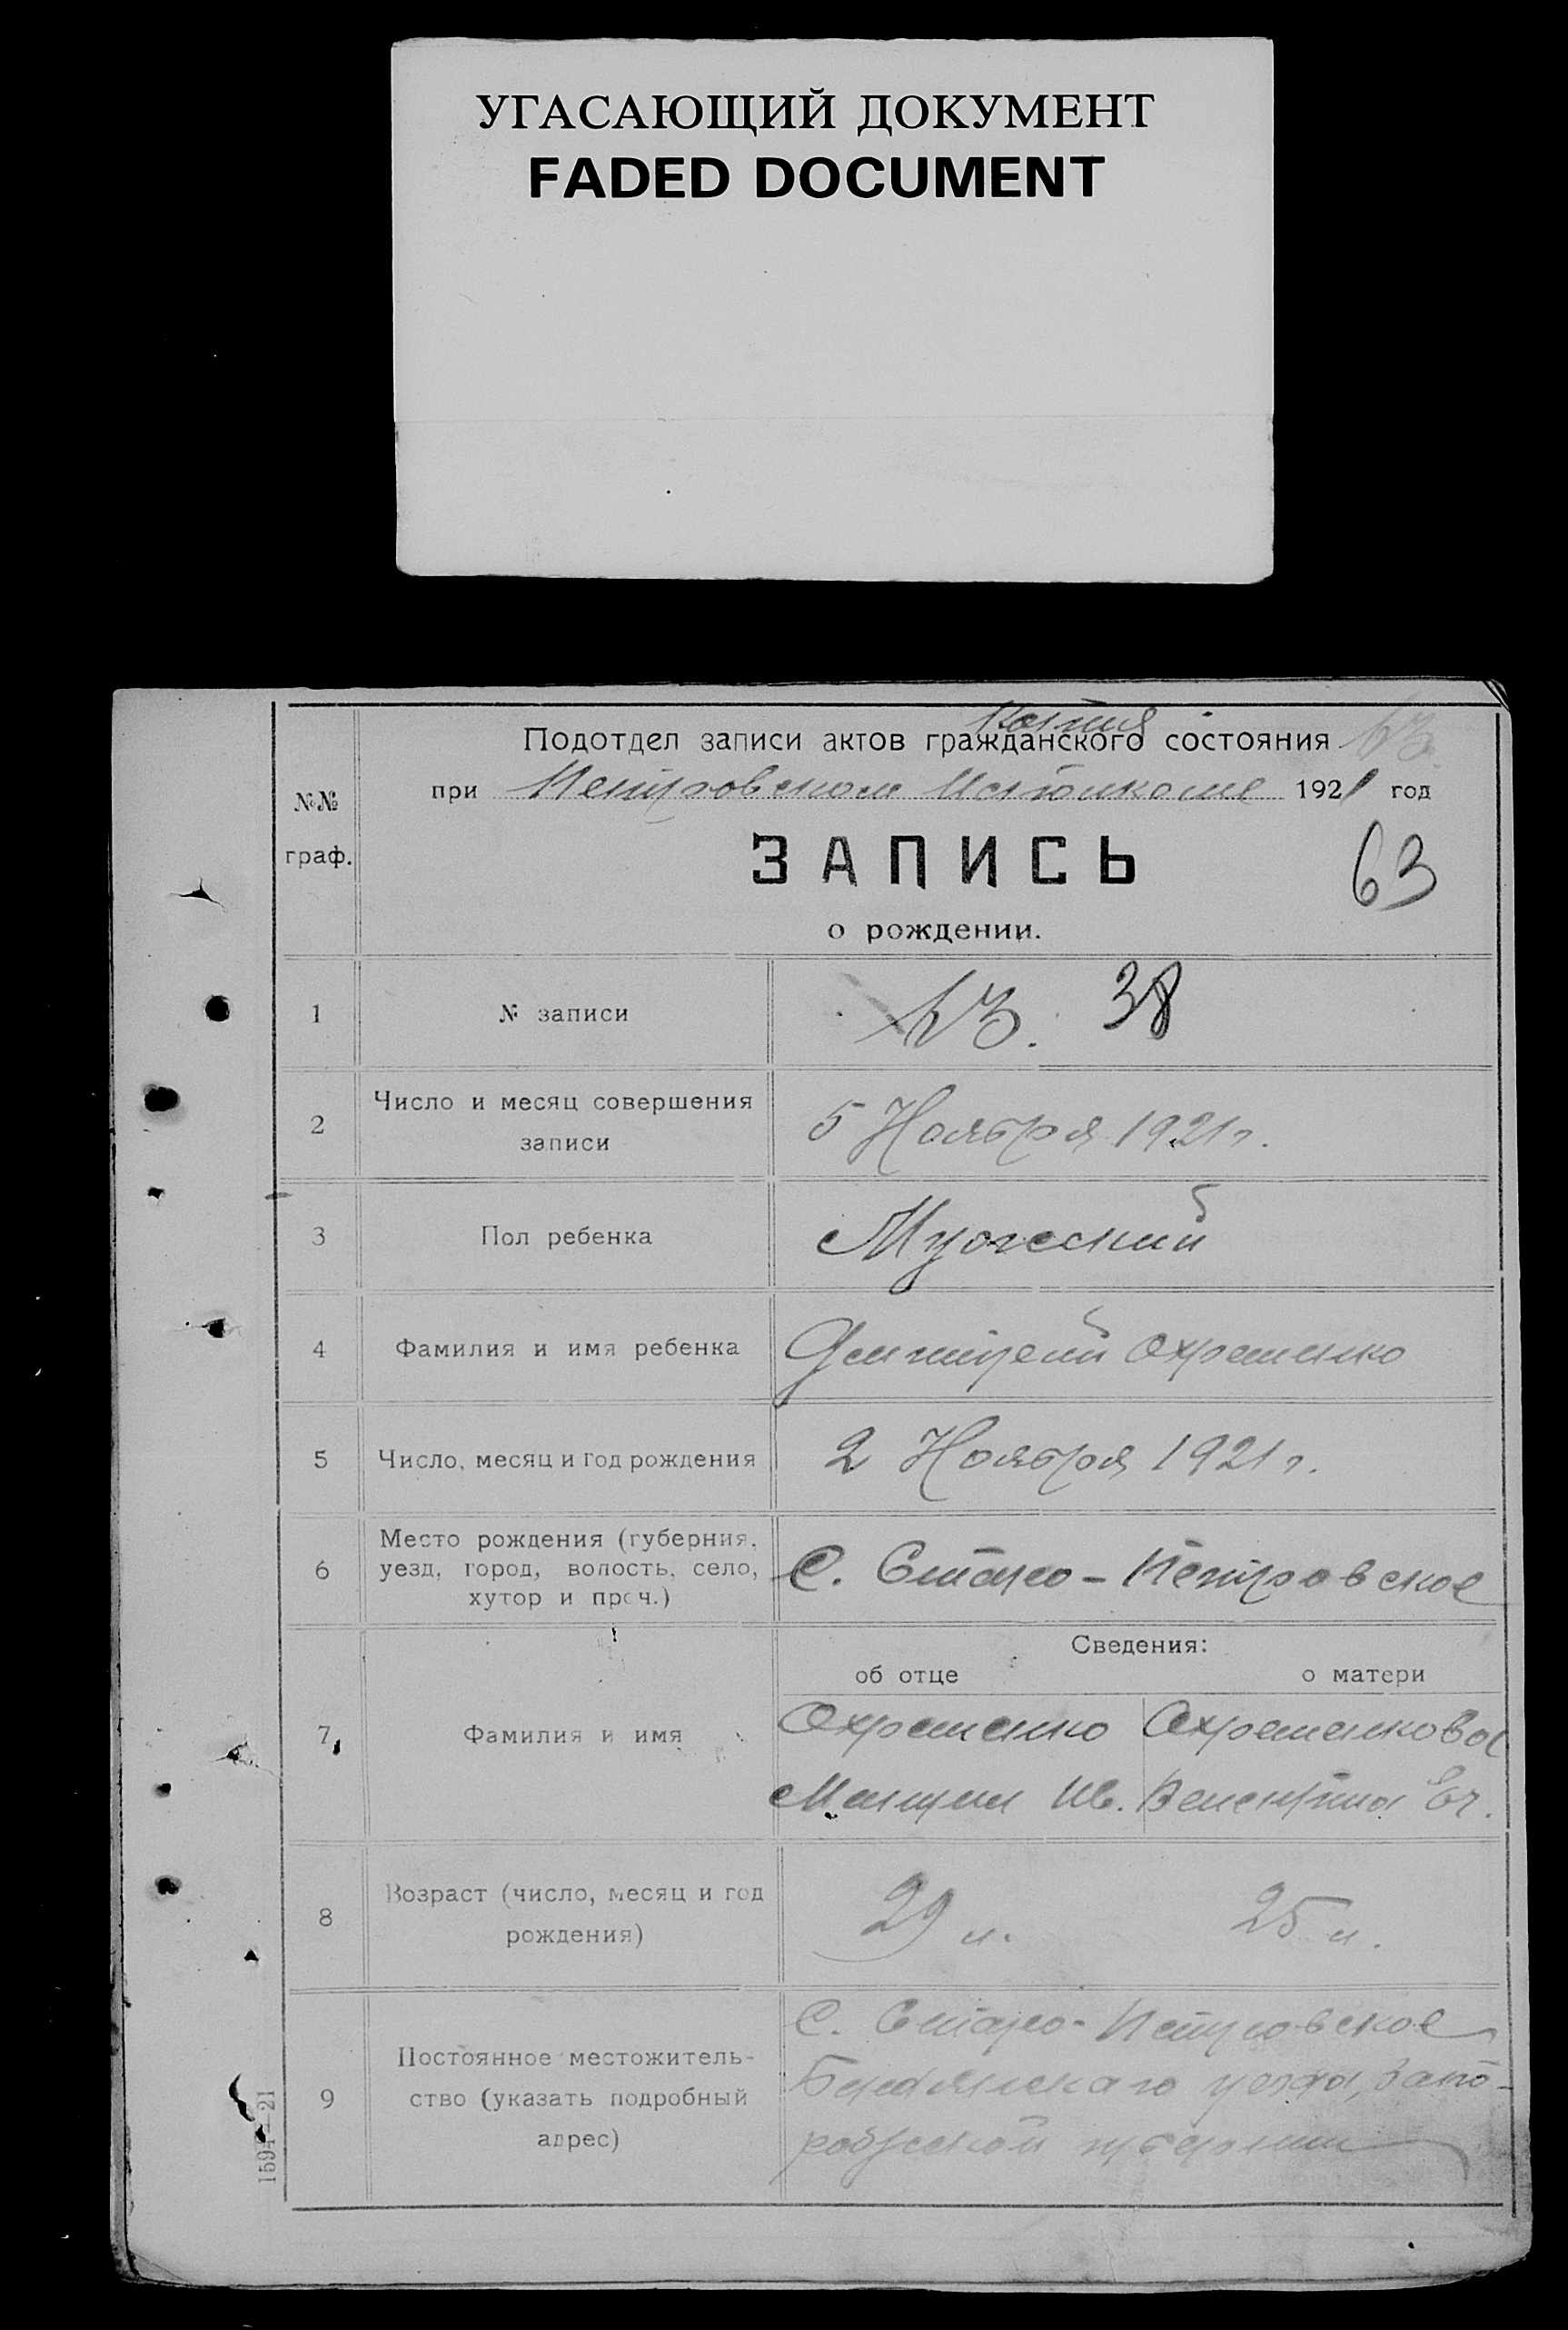 УГАСАЮЩИЙ ДОКУМЕНТ
FADED DOCUMENT
Копия
Подотдел записи актов гражданского состояния
при Петровском Исполкоме 1921 год
№№
граф.
ЗАПИСЬ
63
о рождении.
1 № записи 38
2 Число и месяц совершения
записи
5 Ноября 1921 г.
3 Пол ребенка Мужеский
4 Фамилия и имя ребенка Дмитрий Охременко
5 Число, месяц и год рождения 2 Ноября 1921 г.
6 Место рождения (губерния,
уезд, город, волость, село,
хутор и проч.)
С. Старо-Петровское
Сведения:
об отце о матери
7 Фамилия и имя
Охременко Охременкова
Ив. Евг.
8 Возраст (число, месяц и год
рождения)
29 л. 25 л.
9 Постоянное местожитель-
ство (указать подробный
адрес)
С. Старо-Петровское
Бердянского уезда, Запо-
рожской губернии
1594—21